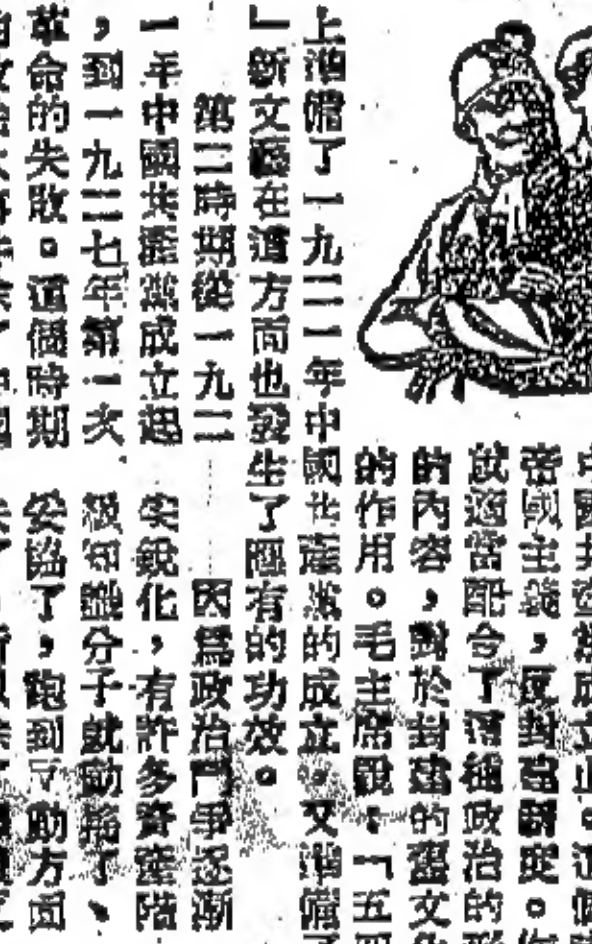 中國共產黨成立止。這個時
帝國主義，反封建制度。作
就適當配合了這種政治的形
的內容，對於封建的舊文化
的作用。毛主席說：「五四
上準備了一九二一年中國共產黨的成立，又準備了
」新文藝在這方面也發生了應有的功效。
第二時期從一九二
一年中國共產黨成立起
，到一九二七年第一次
革命的失敗。這個時期
因爲政治鬥爭逐漸
尖銳化，有許多資產階
級知識分子就動搖了、
妥協了，跑到反動方面